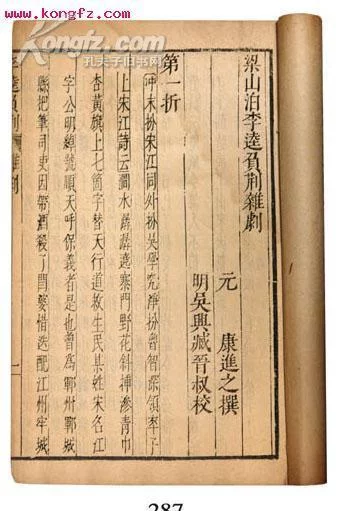 www.kongfz.com
梁山泊李逵負荊雜劇
元 康進之撰
明吳興臧晉叔校
第一折
冲末扮宋江同外扮吳學究淨扮魯智深領卒子
上宋江詩云澗水潺潺遶寨門野花斜揷滲青巾
杏黃旗上七箇字替天行道救生民某姓宋名江
字公明綽號順天呼保義者是也曾爲鄆州鄆城
縣把筆司吏因帶酒殺了閻婆惜迭配江州牢城
李逵負荊 雜劇 一
287